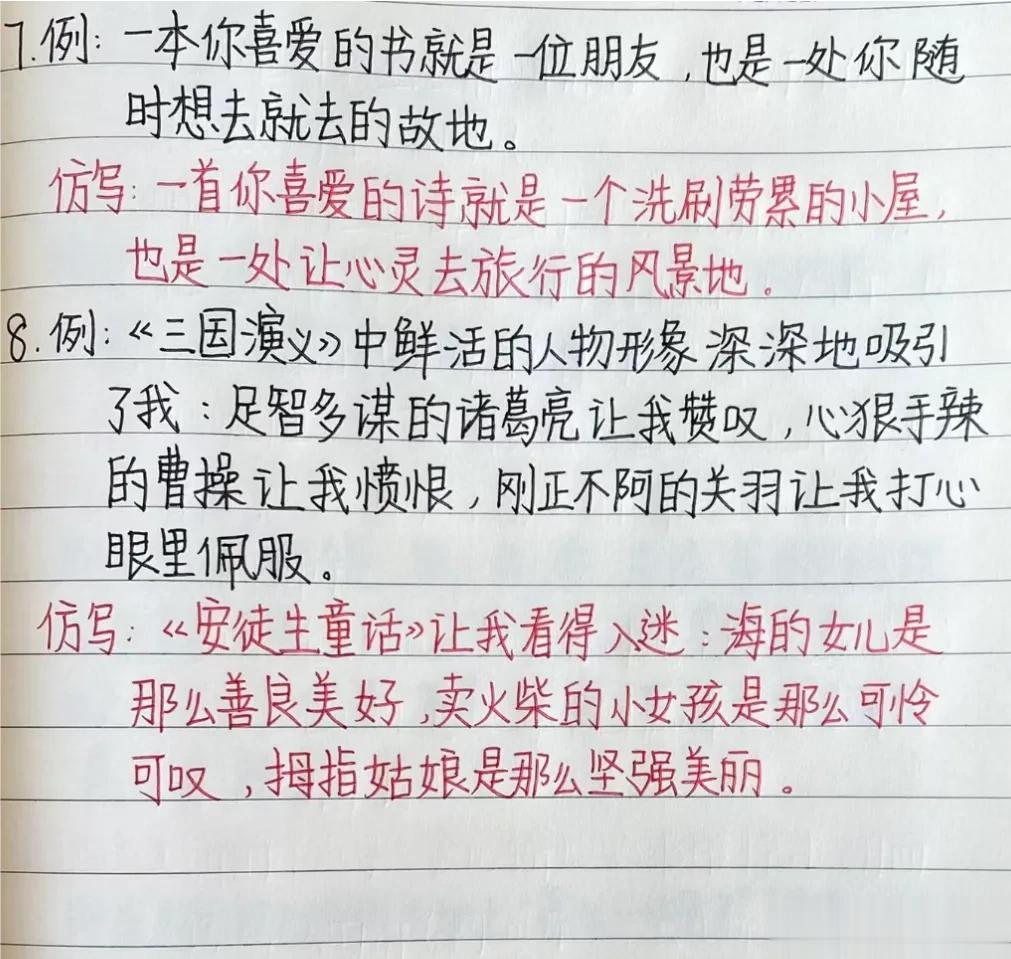 7.例：一本你喜爱的书就是一位朋友，也是一处你随
时想去就去的故地。
仿写：一首你喜爱的诗就是一个洗刷劳累的小屋，
也是一处让心灵去旅行的风景地。
8.例：《三国演义》中鲜活的人物形象深深地吸引
了我：足智多谋的诸葛亮让我赞叹，心狠手辣
的曹操让我愤恨，刚正不阿的关羽让我打心
眼里佩服。
仿写：《安徒生童话》让我看得入迷：海的女儿是
那么善良美好，卖火柴的小女孩是那么可怜
可叹，拇指姑娘是那么坚强美丽。